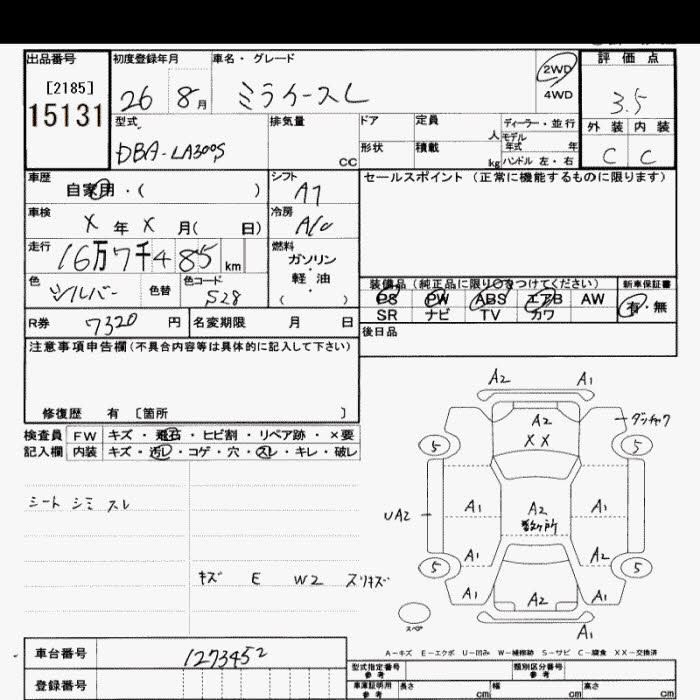 出品番号 初度登録年月 車名・グレード 評価点
[2185]
15131
26 8月 ミライースL 2WD 4WD 3.5
外装 内装
C C
型式 DBA-LA300S 排気量 CC ドア 定員 人 ディーラー・並行
モデル年式 年
形状 積載 kg ハンドル 左・右
車歴 自家用・( ) シフト A7 セールスポイント(正常に機能するものに限ります)
車検 X年X月( 日) 冷房 A/C
走行 16万7千485km 燃料 ガソリン・軽油 ( )
色 シルバー 色替 色コード S28
装備品(純正品に限り○をつけてください) 新車保証書
PS PW ABS エアB AW 有・無
SR ナビ TV カワ
R券 7320円 名変期限 月 日 後日品
注意事項申告欄(不具合内容等は具体的に記入して下さい)
修復歴 有 〔箇所 〕
検査員 FW キズ・飛石・ヒビ割・リペア跡・×要
記入欄 内装 キズ・汚レ・コゲ・穴・スレ・キレ・破レ
シート シミ スレ
キズ E W2 スリキズ
A2 A1
A2
XX
5 5
A1 A2 A1
UA2
A1 A2
5 5
A1 A2 A1
A1
スペア
A-キズ E-エクボ U-凹み W-補修跡 S-サビ C-腐食 XX-交換済
車台番号 1273452
登録番号
型式指定番号 参考 類別区分番号 参考
車庫証明用 参考 長さ cm 幅 cm 高さ cm